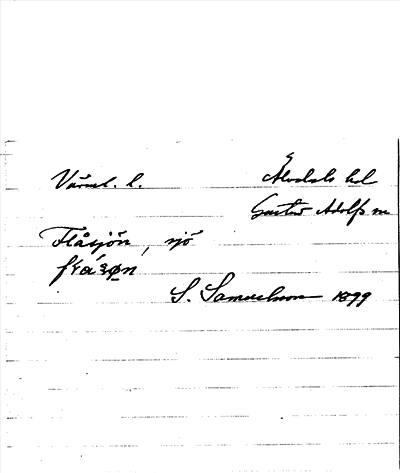 Värml. l. Älvdals hd
Gustav Adolfs sn
Flåsjön, sjö
S. Samuelsson 1899